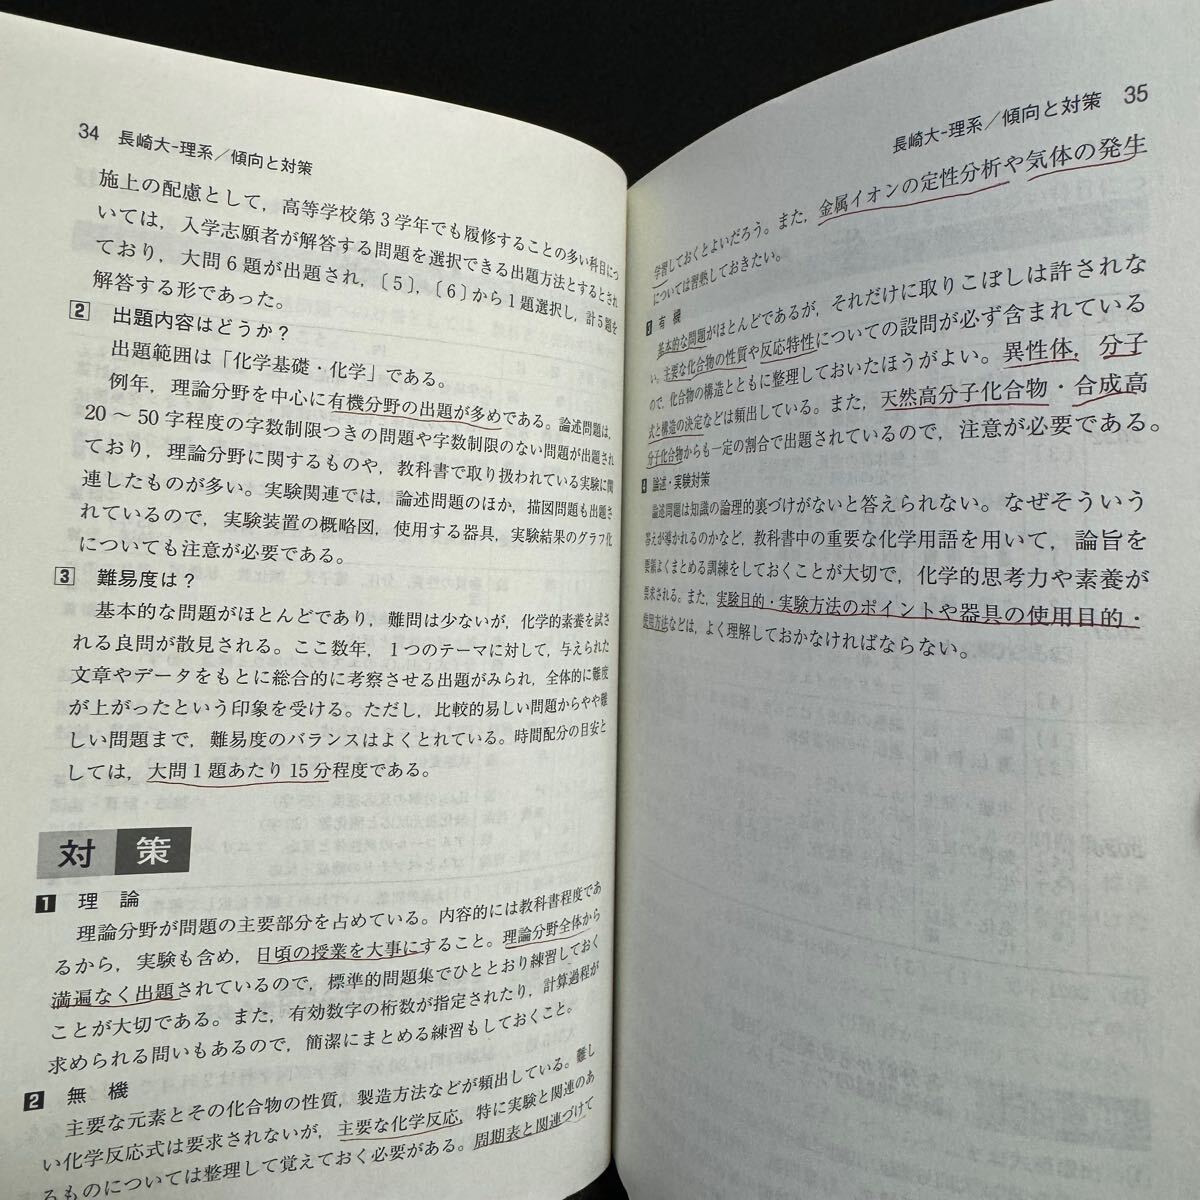 34 長崎大-理系／傾向と対策
施上の配慮として，高等学校第3学年でも履修することの多い科目につ
いては，入学志願者が解答する問題を選択できる出題方法とするとされ
ており，大問6題が出題され，〔5〕，〔6〕から1題選択し，計5題を
解答する形であった。
2 出題内容はどうか？
出題範囲は「化学基礎・化学」である。
例年，理論分野を中心に有機分野の出題が多めである。論述問題は，
20～50字程度の字数制限つきの問題や字数制限のない問題が出題され
ており，理論分野に関するものや，教科書で取り扱われている実験に関
連したものが多い。実験関連では，論述問題のほか，描図問題も出題さ
れているので，実験装置の概略図，使用する器具，実験結果のグラフ化
についても注意が必要である。
3 難易度は？
基本的な問題がほとんどであり，難問は少ないが，化学的素養を試さ
れる良問が散見される。ここ数年，1つのテーマに対して，与えられた
文章やデータをもとに総合的に考察させる出題がみられ，全体的に難度
が上がったという印象を受ける。ただし，比較的易しい問題からやや難
しい問題まで，難易度のバランスはよくとれている。時間配分の目安と
しては，大問1題あたり15分程度である。
対策
1 理論
理論分野が問題の主要部分を占めている。内容的には教科書程度であ
るから，実験も含め，日頃の授業を大事にすること。理論分野全体から
満遍なく出題されているので，標準的問題集でひととおり練習しておく
ことが大切である。また，有効数字の桁数が指定されたり，計算過程が
求められる問いもあるので，簡潔にまとめる練習もしておくこと。
2 無機
主要な元素とその化合物の性質，製造方法などが頻出している。難し
い化学反応式は要求されないが，主要な化学反応，特に実験と関連のあ
るものについては整理して覚えておく必要がある。周期表と関連づけて
長崎大-理系／傾向と対策 35
学習しておくとよいだろう。また，金属イオンの定性分析や気体の発生
については習熟しておきたい。
3 有機
基本的な問題がほとんどであるが，それだけに取りこぼしは許されな
い。主要な化合物の性質や反応特性についての設問が必ず含まれている
ので，化合物の構造とともに整理しておいたほうがよい。異性体，分子
式と構造の決定などは頻出している。また，天然高分子化合物・合成高
分子化合物からも一定の割合で出題されているので，注意が必要である。
4 論述・実験対策
論述問題は知識の論理的裏づけがないと答えられない。なぜそういう
答えが導かれるのかなど，教科書中の重要な化学用語を用いて，論旨を
要領よくまとめる訓練をしておくことが大切で，化学的思考力や素養が
要求される。また，実験目的・実験方法のポイントや器具の使用目的・
使用方法などは，よく理解しておかなければならない。